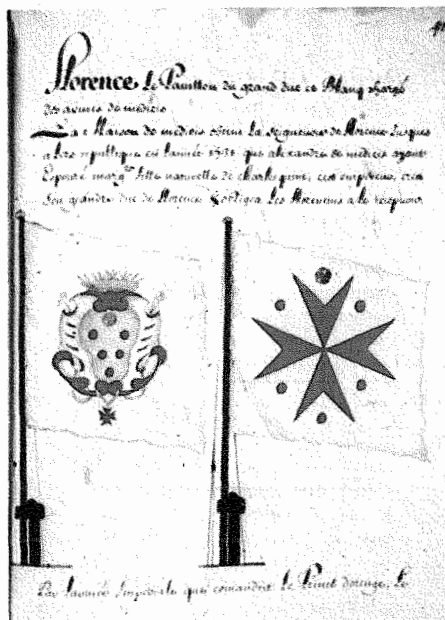 Florence Le Pavillon du grand duc et Blanq chargé
des armes de medicis
La Maison de medicis obtins La Seigneurie de Florence Jusques
alors republique en l'année 1531 que alexandre de medicis ayant
Espousé marg.te fille naturelle de charlequint, cest empereur, crea
son gendre duc de Florence Et obligea Les florentins a le recepuoir
Par l'armée Imperiale que comandoit Le Prince dorenge, Le